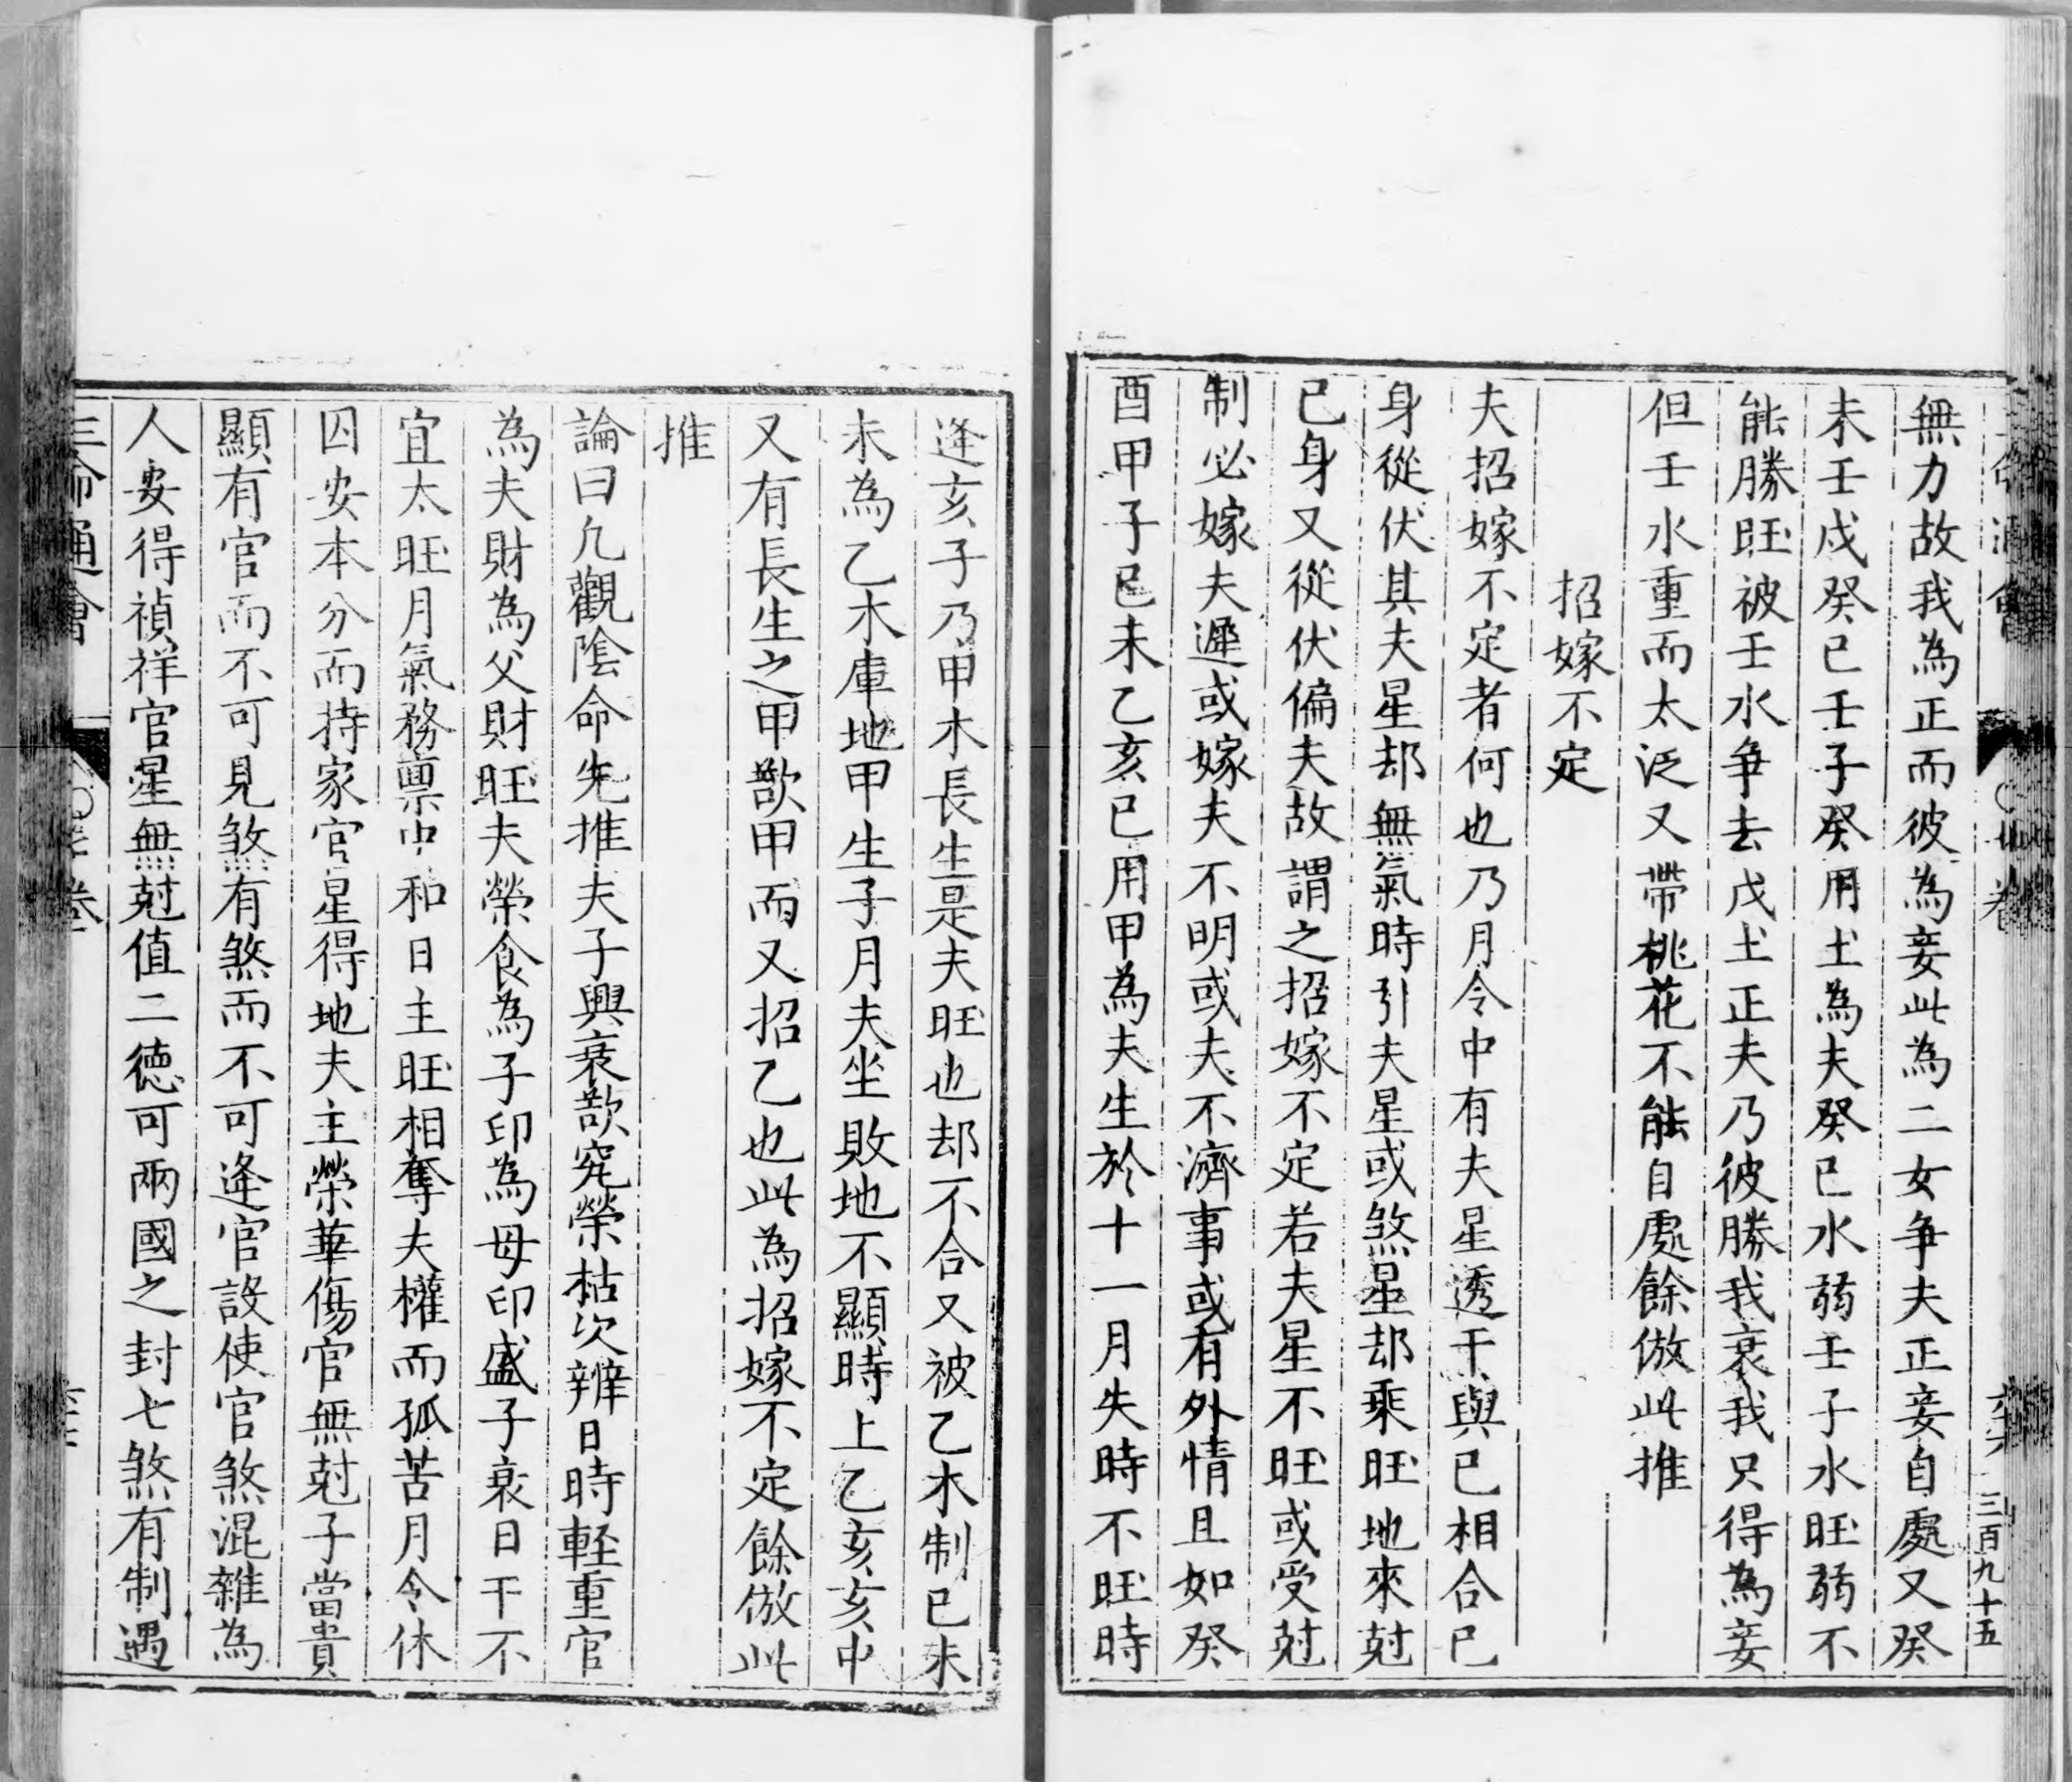 無力故我為正而彼為妾此為二女争夫正妾自處又癸
未壬戍癸已壬子癸用土為夫癸已水弱壬子水旺弱不
能勝旺被壬水争去戊土正夫乃彼勝我衰我只得為妾
但壬水重而太泛又帶桃花不能自處餘倣此推
招嫁不定
夫招嫁不定者何也乃月令中有夫星透干與已相合已
身從伏其夫星却無氣時引夫星或煞星却乘旺地來尅
已身又從伏偏夫故謂之招嫁不定若夫星不旺或受尅
制必嫁夫遲或嫁夫不明或夫不濟事或有外情且如癸
酉甲子已未乙亥已用甲為夫生於十一月失時不旺時
三百九十五
逢亥子乃甲木長生是夫旺也却不合又被乙木制已未
未為乙木庫地甲生子月夫坐敗地不顯時上乙亥亥中
又有長生之甲歆甲而又招乙也此為招嫁不定餘倣此
推
論曰凢觀陰命先推夫子興衰歆究榮枯次辨日時輕重官
為夫財為父財旺夫榮食為子印為母印盛子衰日干不
宜太旺月氣務禀中和日主旺相奪夫權而孤苦月令休
囚安本分而持家官星得地夫主榮華傷官無尅子當貴
顯有官而不可見煞有煞而不可逢官設使官煞混雜為
人妄得禎祥官星無尅值二德可兩國之封七煞有制遇
三命通會
卷